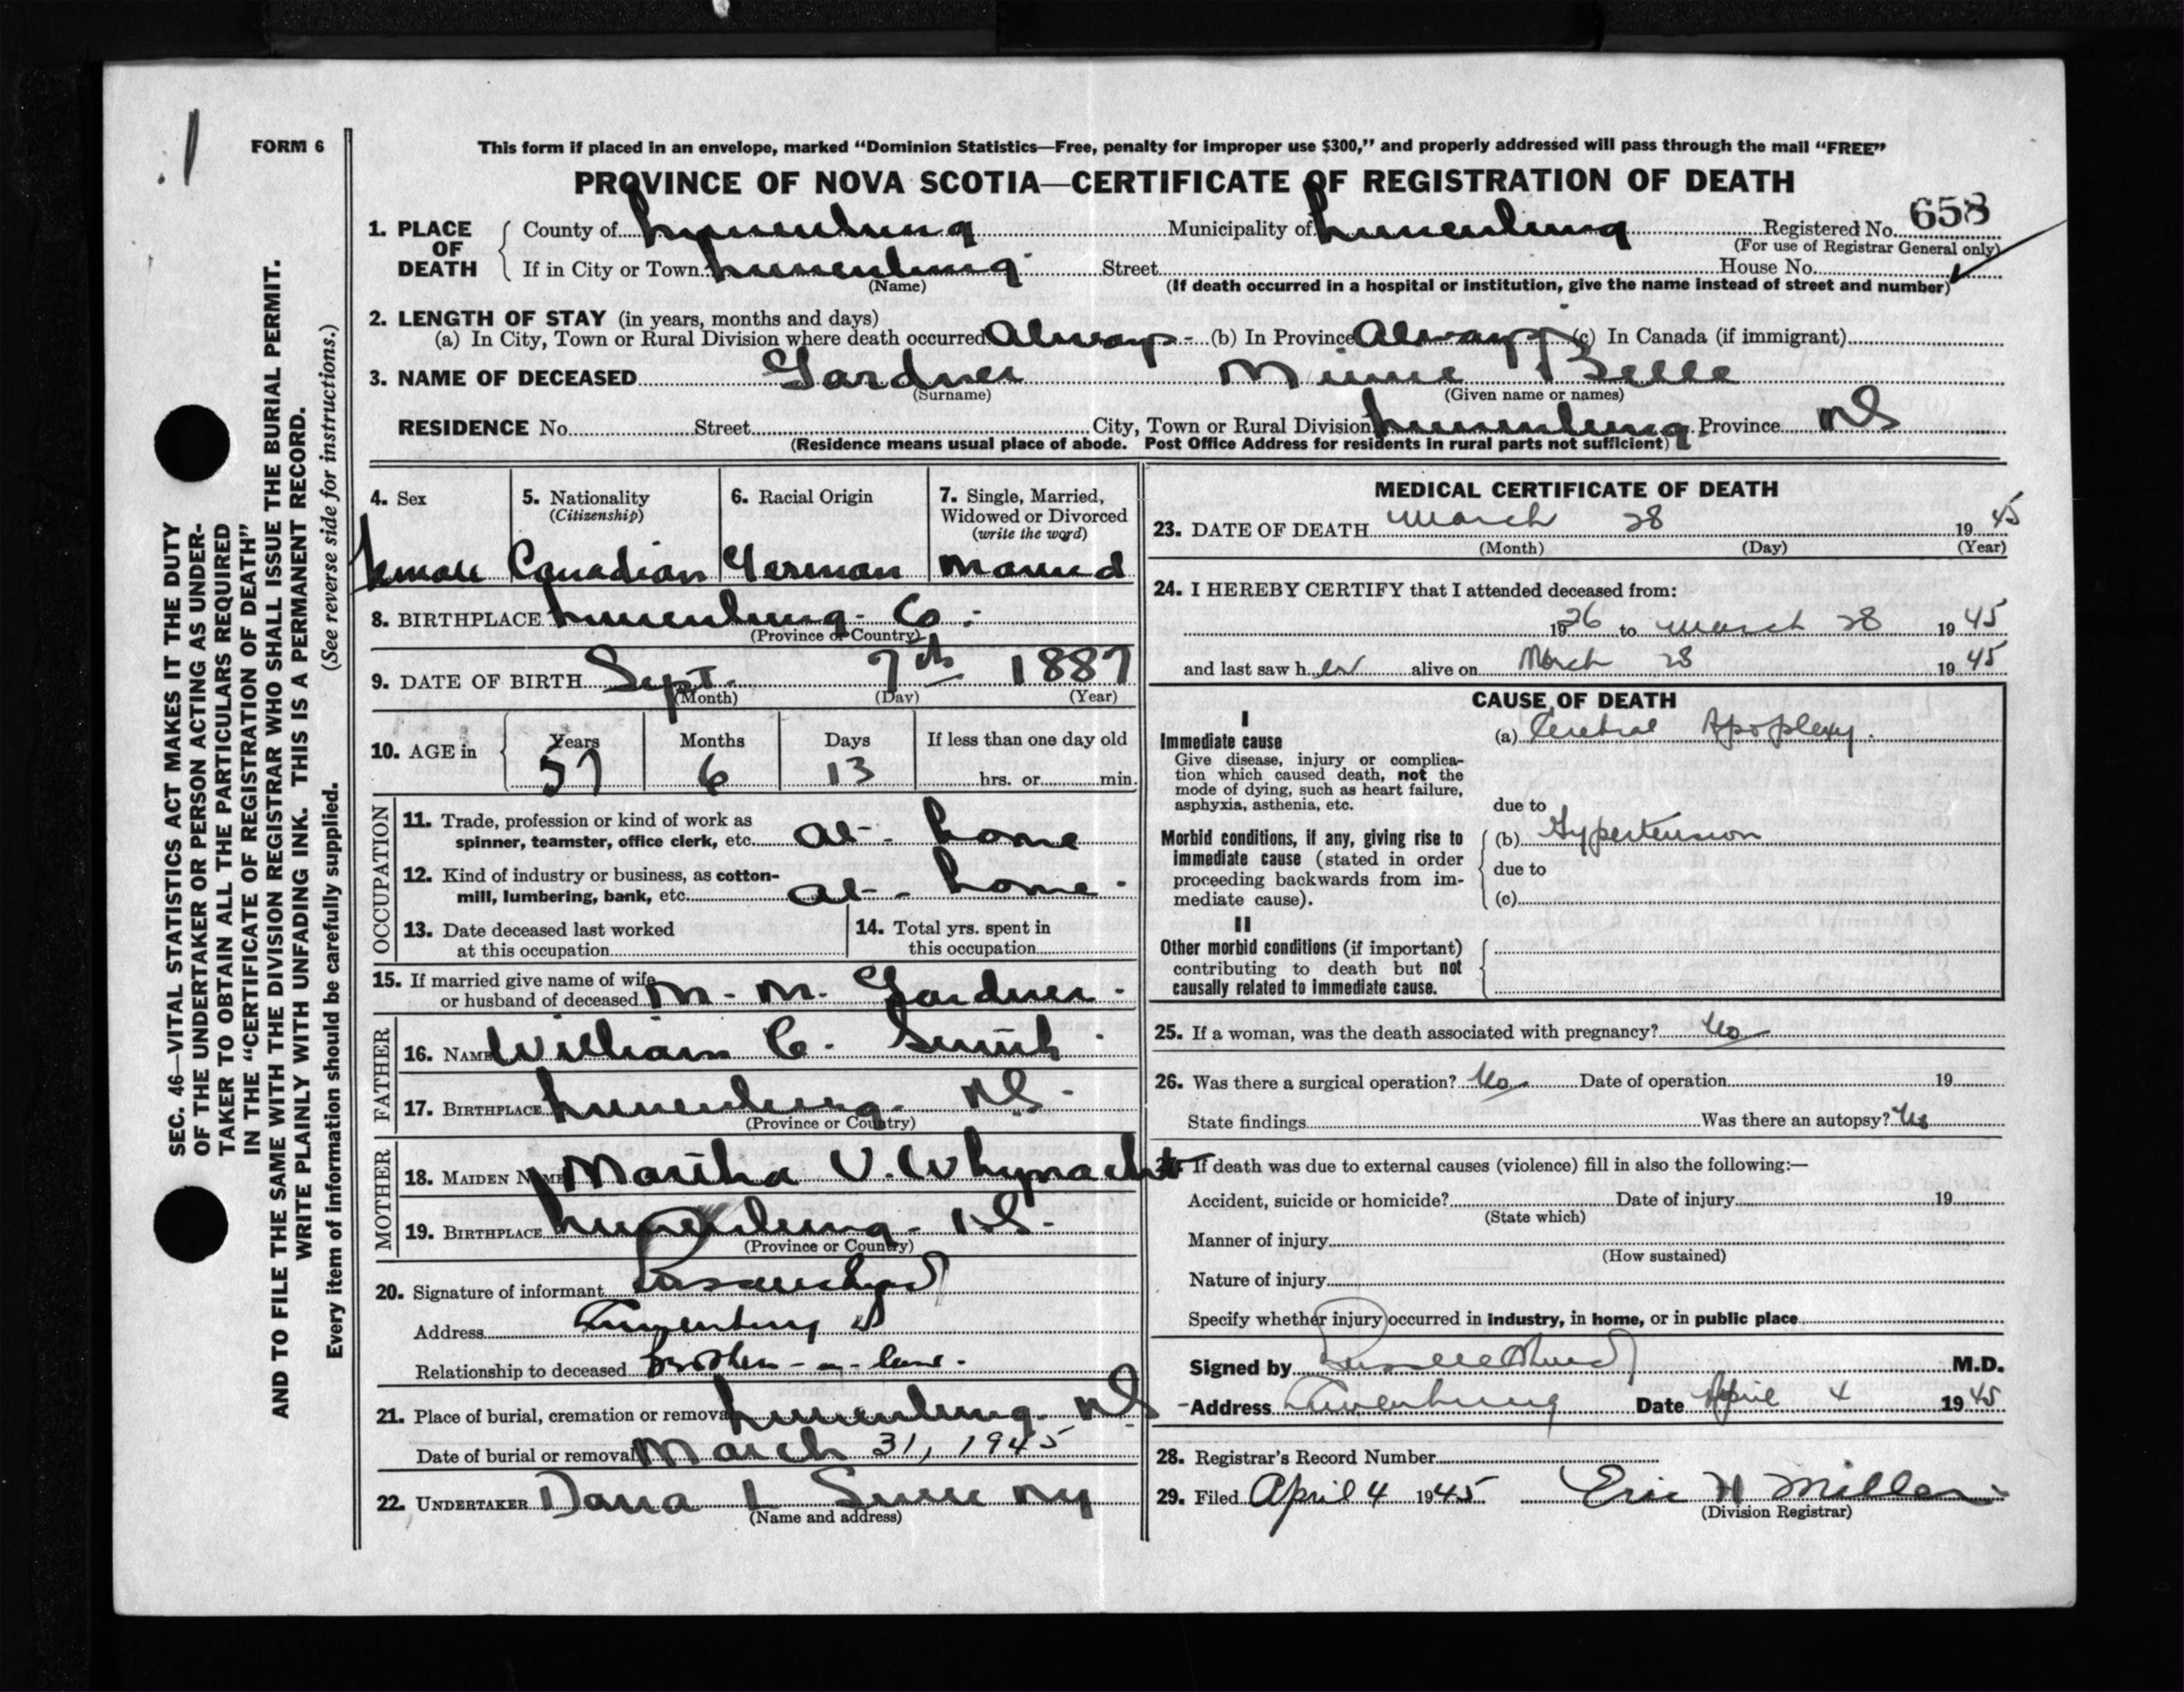 SEC. 46—VITAL STATISTICS ACT MAKES IT THE DUTY
OF THE UNDERTAKER OR PERSON ACTING AS UNDER-
TAKER TO OBTAIN ALL THE PARTICULARS REQUIRED
IN THE "CERTIFICATE OF REGISTRATION OF DEATH"
AND TO FILE THE SAME WITH THE DIVISION REGISTRAR WHO SHALL ISSUE THE BURIAL PERMIT.
WRITE PLAINLY WITH UNFADING INK. THIS IS A PERMANENT RECORD.
Every item of information should be carefully supplied. (See reverse side for instructions.)
FORM 6
This form if placed in an envelope, marked "Dominion Statistics—Free, penalty for improper use $300," and properly addressed will pass through the mail "FREE"
PROVINCE OF NOVA SCOTIA—CERTIFICATE OF REGISTRATION OF DEATH
658
1. PLACE OF DEATH County of Lunenburg Municipality of Lunenburg Registered No.
(For use of Registrar General only)
If in City or Town Lunenburg Street House No.
(Name) (If death occurred in a hospital or institution, give the name instead of street and number)
2. LENGTH OF STAY (in years, months and days)
(a) In City, Town or Rural Division where death occurred Always (b) In Province Always (c) In Canada (if immigrant)
3. NAME OF DECEASED Gardner Minnie Belle
(Surname) (Given name or names)
RESIDENCE No. Street City, Town or Rural Division Lunenburg Province NS
(Residence means usual place of abode. Post Office Address for residents in rural parts not sufficient)
4. Sex 5. Nationality (Citizenship) 6. Racial Origin 7. Single, Married, Widowed or Divorced (write the word)
Female Canadian German Married
8. BIRTHPLACE Lunenburg Co.
(Province or Country)
9. DATE OF BIRTH Sept. 7th 1887
(Month) (Day) (Year)
10. AGE in Years Months Days If less than one day old
57 6 13 hrs. or min.
OCCUPATION
11. Trade, profession or kind of work as
spinner, teamster, office clerk, etc. at - home
12. Kind of industry or business, as cotton-
mill, lumbering, bank, etc. at - home
13. Date deceased last worked
at this occupation
14. Total yrs. spent in
this occupation
15. If married give name of wife
or husband of deceased M. M. Gardner
FATHER
16. NAME William C. Smith
17. BIRTHPLACE Lunenburg NS
(Province or Country)
MOTHER
18. MAIDEN NAME Martha V. Whynacht
19. BIRTHPLACE Lunenburg N.S.
(Province or Country)
20. Signature of informant
Address Lunenburg NS
Relationship to deceased brother-in-law
21. Place of burial, cremation or removal Lunenburg NS
Date of burial or removal March 31, 1945
22. UNDERTAKER Dana L
(Name and address)
MEDICAL CERTIFICATE OF DEATH
23. DATE OF DEATH March 28 1945
(Month) (Day) (Year)
24. I HEREBY CERTIFY that I attended deceased from:
1926 to March 28 1945
and last saw her alive on March 28 1945
CAUSE OF DEATH
I
Immediate cause
Give disease, injury or complica-
tion which caused death, not the
mode of dying, such as heart failure,
asphyxia, asthenia, etc.
(a) Cerebral Apoplexy.
due to
Morbid conditions, if any, giving rise to
immediate cause (stated in order
proceeding backwards from im-
mediate cause).
(b) Hypertension
due to
(c)
II
Other morbid conditions (if important)
contributing to death but not
causally related to immediate cause.
25. If a woman, was the death associated with pregnancy? No
26. Was there a surgical operation? No Date of operation 19
State findings Was there an autopsy? No
If death was due to external causes (violence) fill in also the following:—
Accident, suicide or homicide? Date of injury 19
(State which)
Manner of injury
(How sustained)
Nature of injury
Specify whether injury occurred in industry, in home, or in public place
Signed by M.D.
Address Lunenburg Date April 4 1945
28. Registrar's Record Number
29. Filed April 4 1945 Eric H Miller
(Division Registrar)